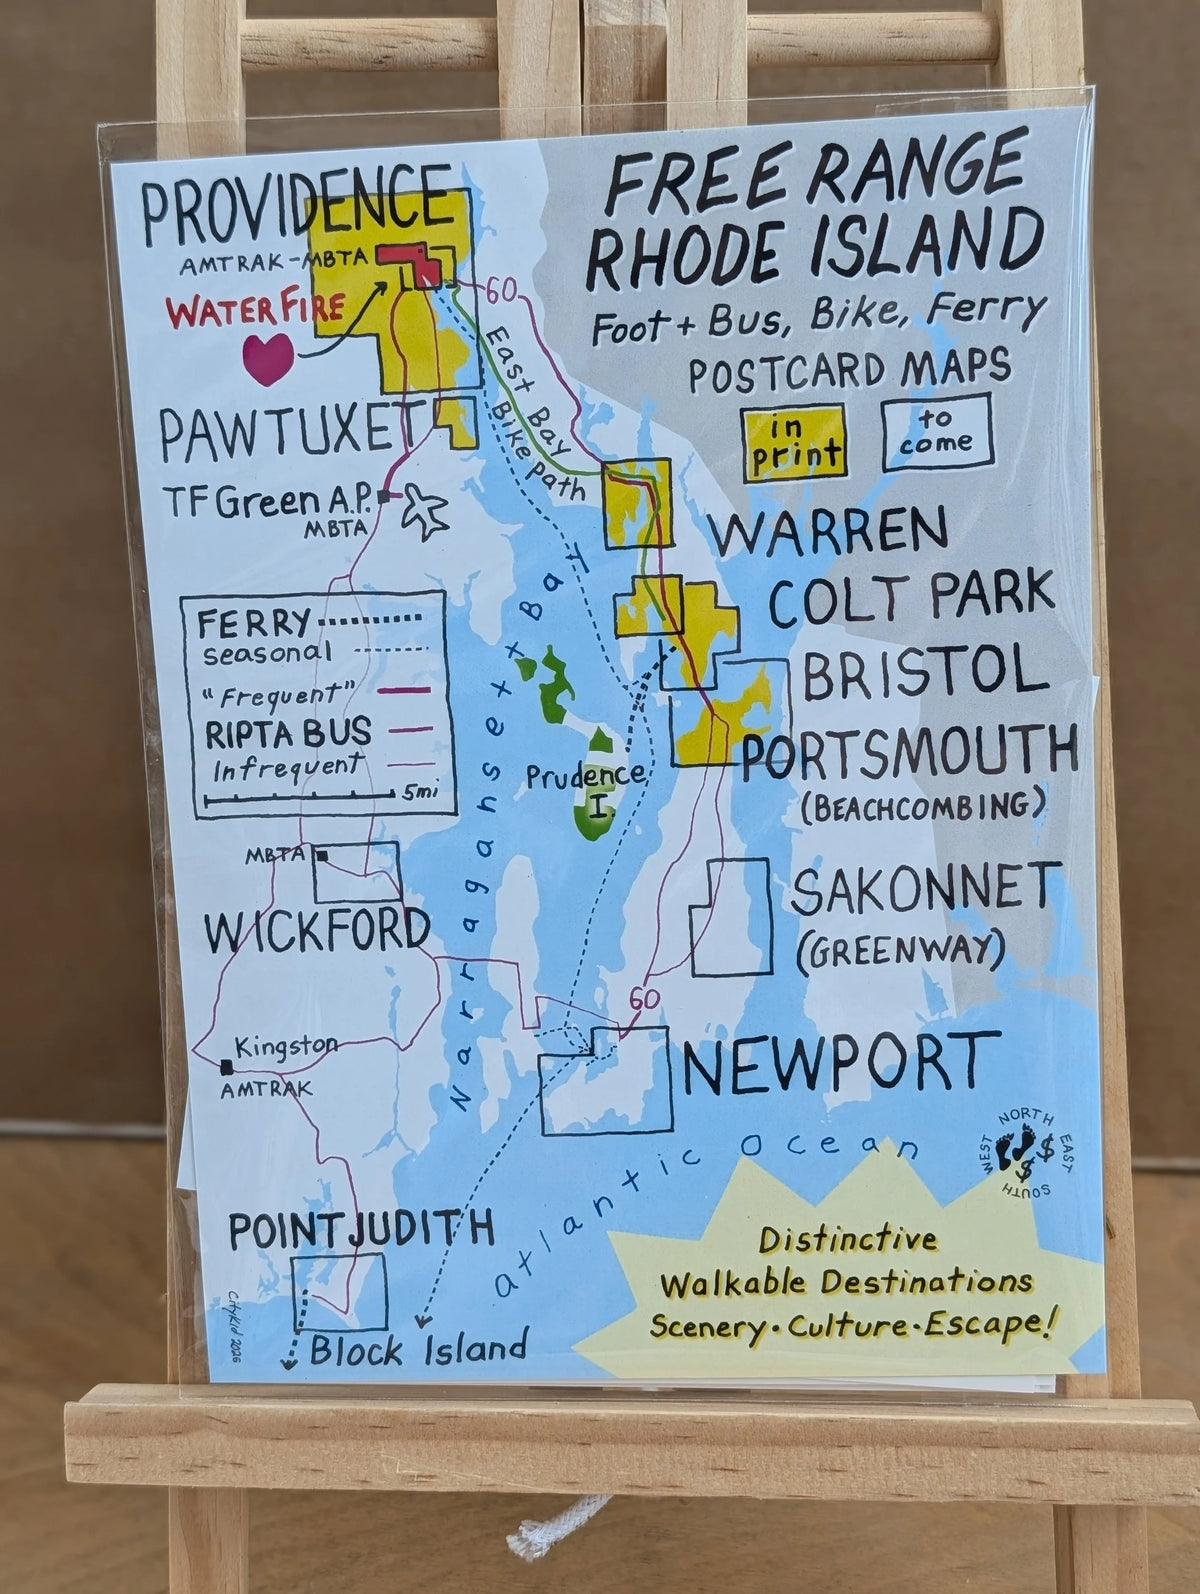 FREE RANGE
RHODE ISLAND
Foot + Bus, Bike, Ferry
POSTCARD MAPS
in
print
to
come
PROVIDENCE
AMTRAK-MBTA
WATERFIRE
60
East Bay
Bike Path
PAWTUXET
TF Green A.P.
MBTA
WARREN
COLT PARK
BRISTOL
PORTSMOUTH
(BEACHCOMBING)
FERRY
seasonal
"Frequent"
RIPTA BUS
Infrequent
5mi
Narragansett Bay
Prudence
I.
MBTA
WICKFORD
SAKONNET
(GREENWAY)
60
Kingston
AMTRAK
NEWPORT
Atlantic Ocean
NORTH
EAST
SOUTH
WEST
$
$
POINT JUDITH
Block Island
CityKid 2026
Distinctive
Walkable Destinations
Scenery · Culture · Escape!